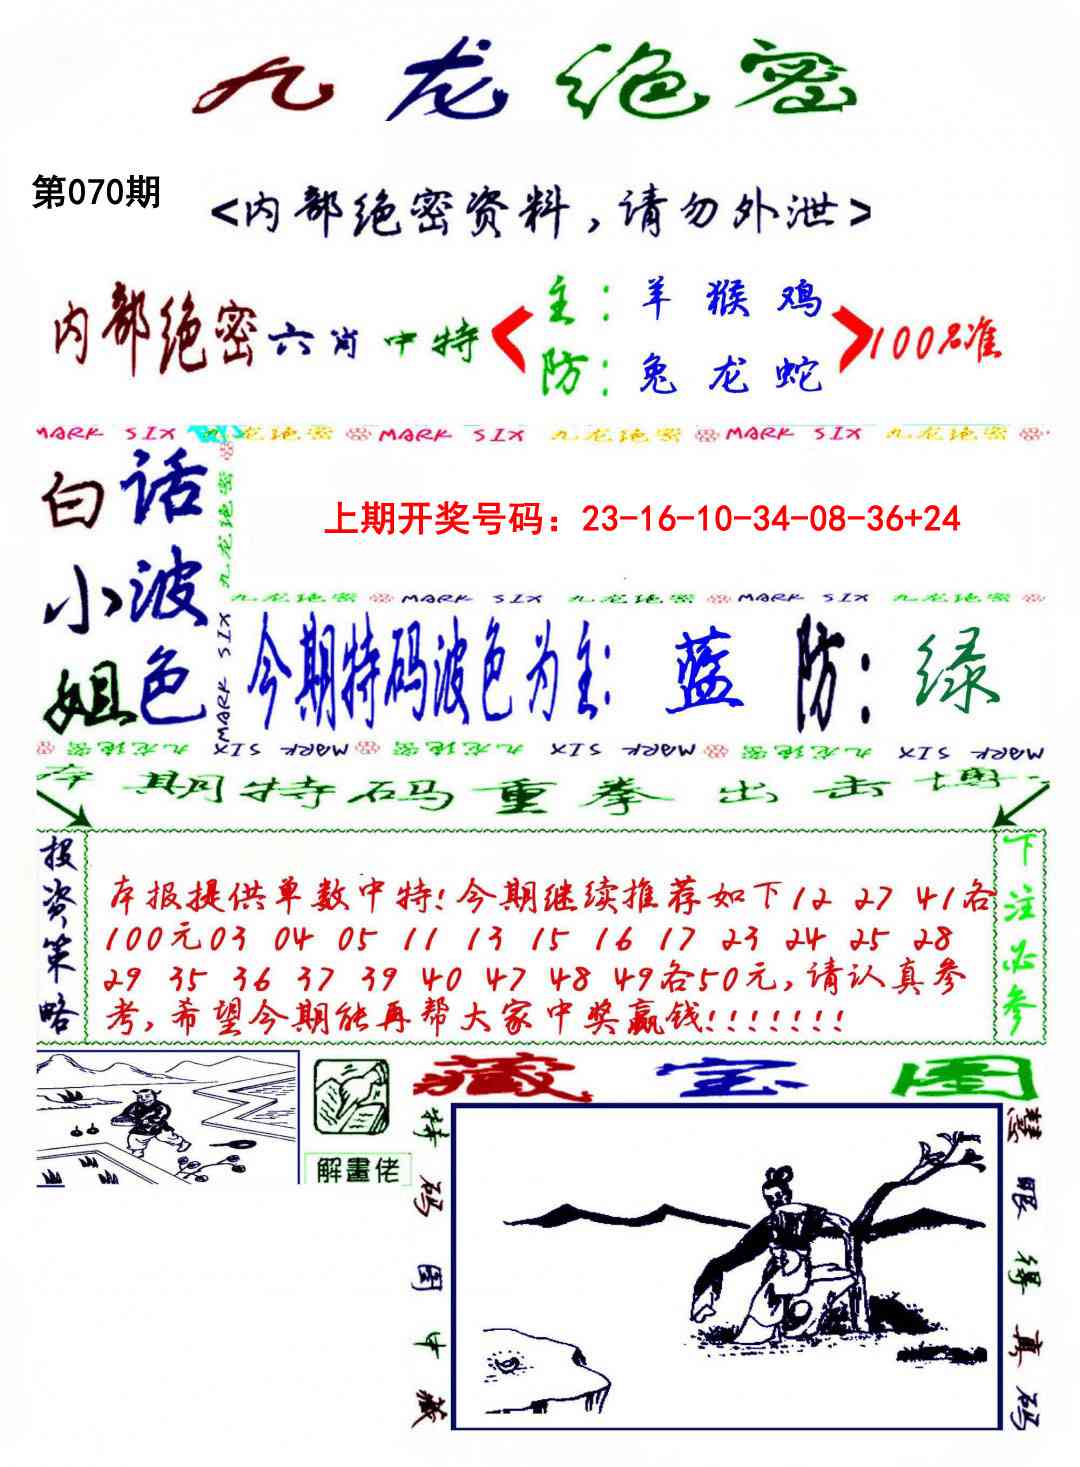 九龙绝密
第070期
<内部绝密资料,请勿外泄>
内部绝密六肖中特
主：羊 猴 鸡
防：兔 龙 蛇
100%准
MARK SIX 九龙绝密 MARK SIX 九龙绝密 MARK SIX 九龙绝密
九龙绝密
MARK SIX
白小姐
话波色
上期开奖号码：23-16-10-34-08-36+24
九龙绝密 MARK SIX 九龙绝密 MARK SIX 九龙绝密
今期特码波色为主：蓝 防：绿
九龙绝密 MARK SIX 九龙绝密 MARK SIX 九龙绝密 MARK SIX
本期特码重拳出击博
投资策略
本报提供单数中特!今期继续推荐如下12 27 41各
100元03 04 05 11 13 15 16 17 23 24 25 28
29 35 36 37 39 40 47 48 49各50元,请认真参
考,希望今期能再帮大家中奖赢钱!!!!!!!
下注必参
解畫佬
藏宝图
特码图中藏
慧眼得真码